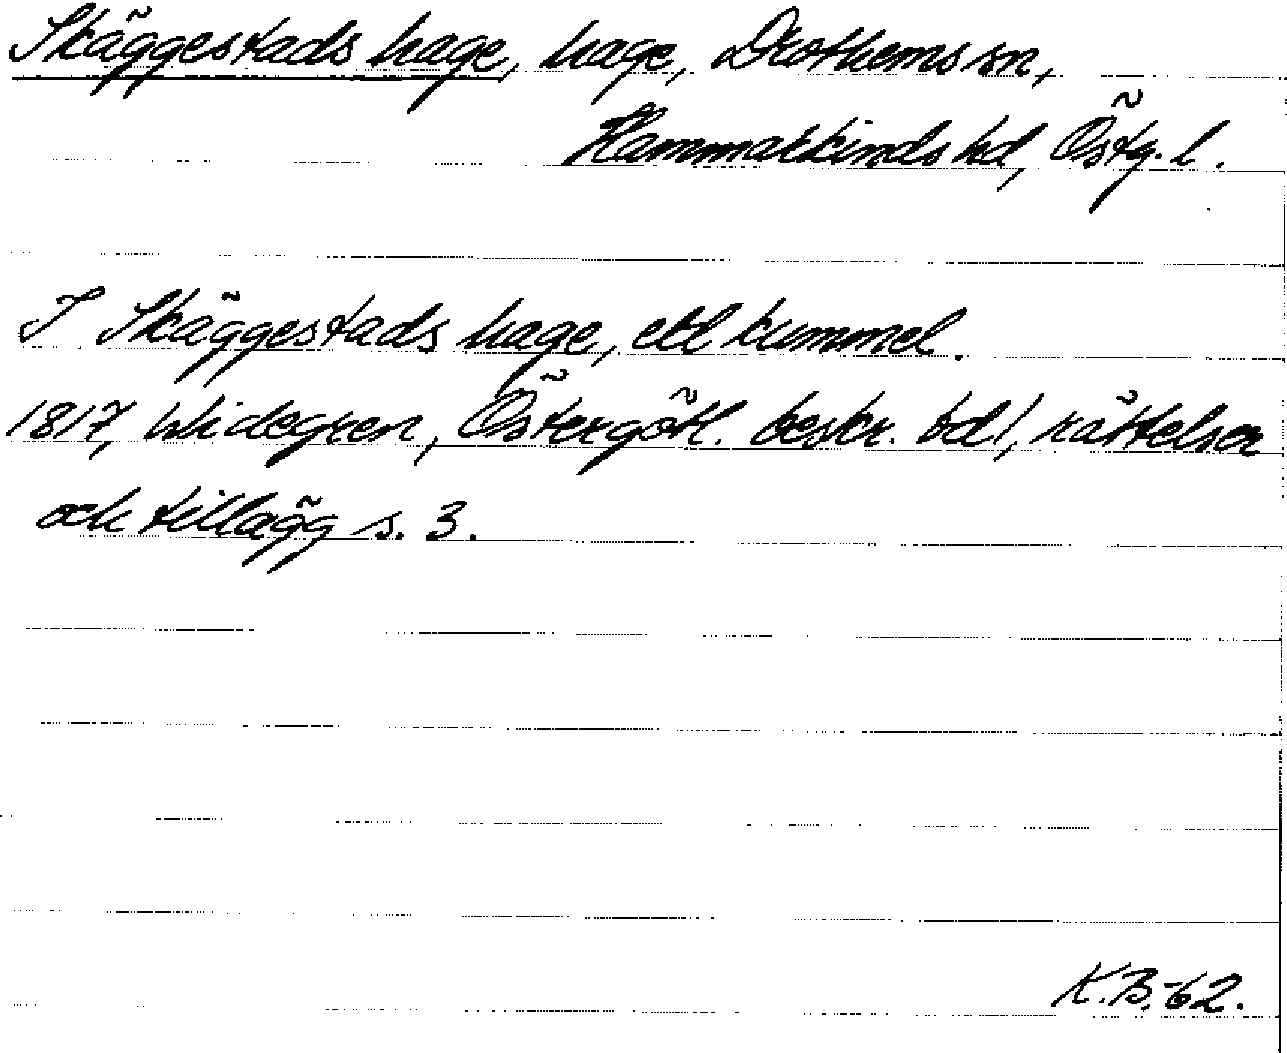 Skäggestads hage, hage, Drothems sn,
Hammarkinds hd, Östg. l.
I Skäggestads hage, ett kummel.
1817, Widegren, Östergötl. beskr. bd 1, rättelser
och tillägg s. 3.
K.B.-62.